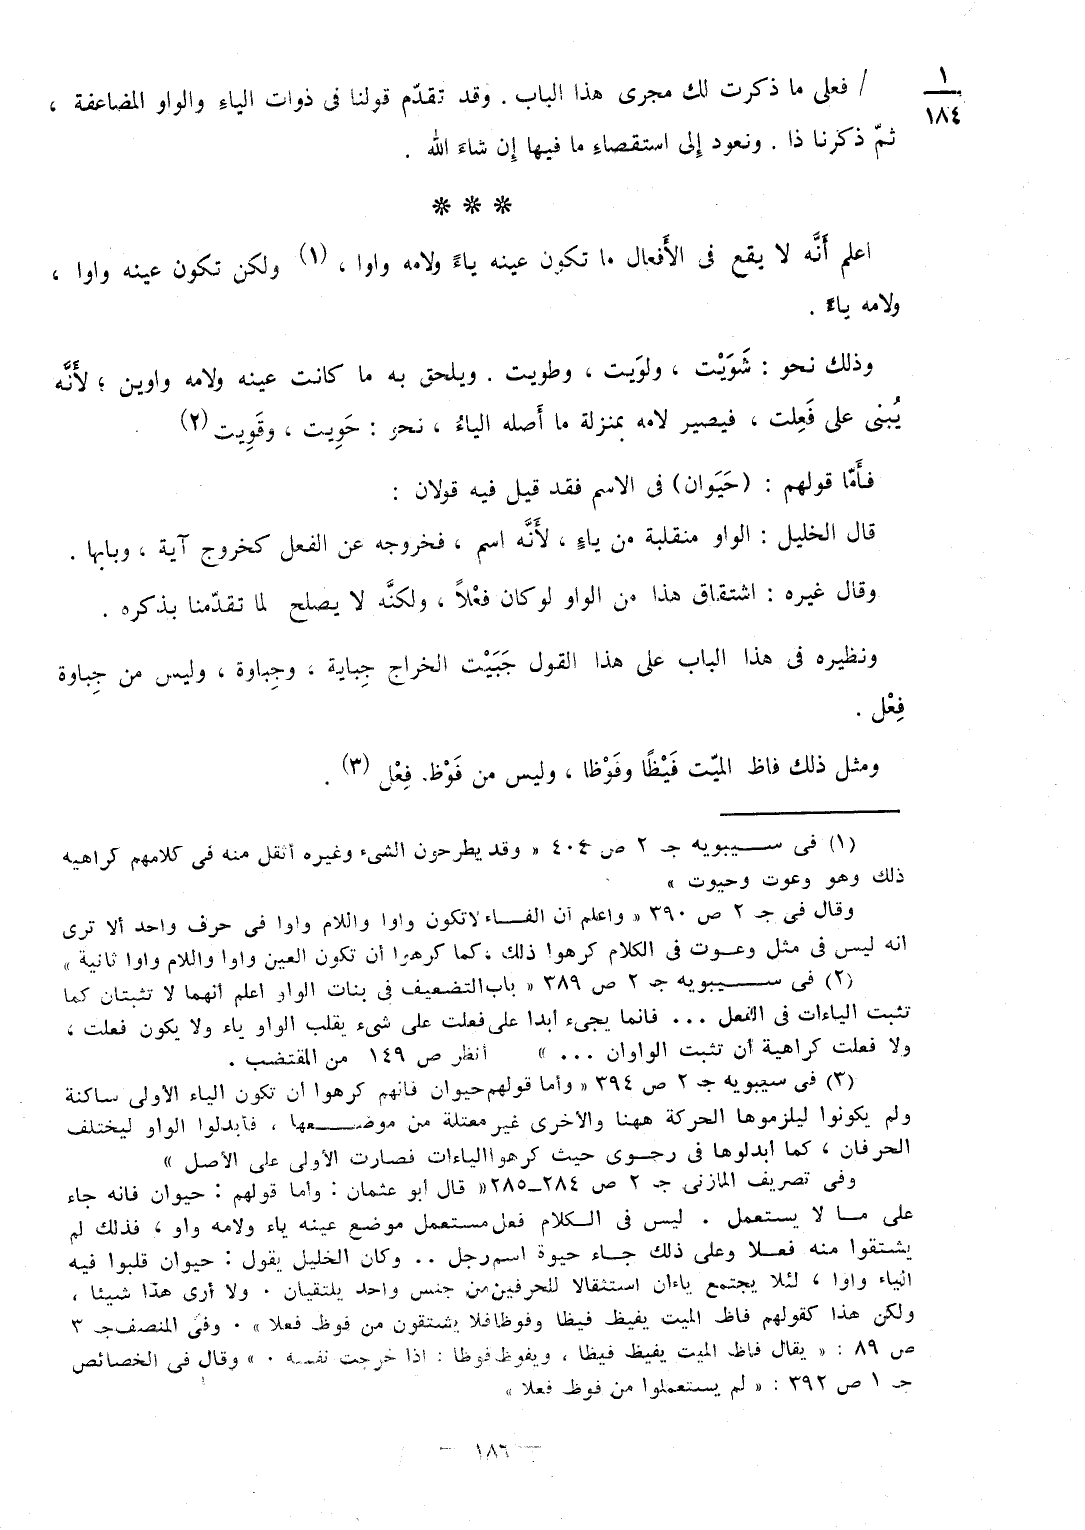 ١
١٨٤
/ فعلى ما ذكرت لك مجرى هذا الباب . وقد تقدّم قولنا فى ذوات الياءِ والواو المضاعفة ،
ثمّ ذكرنا ذا . ونعود إلى استقصاءِ ما فيها إن شاءَ الله .
❊ ❊ ❊
اعلم أَنَّه لا يقع فى الأَفعال ما تكون عينه ياءً ولامه واوا ، (١) ولكن تكون عينه واوا ،
ولامه ياءً .
وذلك نحو : شَوَيْت ، ولوَيت ، وطويت . ويلحق به ما كانت عينه ولامه واوين ؛ لأَنَّه
يُبنى على فَعِلت ، فيصير لامه بمنزلة ما أَصله الياءُ ، نحو : حَوِيت ، وقَوِيت (٢)
فأَمّا قولهم : (حَيَوان) فى الاسم فقد قيل فيه قولان :
قال الخليل : الواو منقلبة من ياءٍ ، لأَنَّه اسم ، فخروجه عن الفعل كخروج آية ، وبابها .
وقال غيره : اشتقاق هذا من الواو لو كان فعْلاً ، ولكنَّه لا يصلح لما تقدّمنا بذكره .
ونظيره فى هذا الباب على هذا القول جَبَيْت الخراج جِباية ، وجِباوة ، وليس من جِباوة
فِعْل .
ومثل ذلك فاظ الميّت فَيْظًا وفَوْظا ، وليس من فَوْظ. فِعْل (٣) .
(١) فى سيبويه جـ ٢ ص ٤٠٤ « وقد يطرحون الشىء وغيره أثقل منه فى كلامهم كراهية
ذلك وهو وعوت وحيوت »
وقال فى جـ ٢ ص ٣٩٠ « واعلم أن الفاء لاتكون واوا واللام واوا فى حرف واحد ألا ترى
انه ليس فى مثل وعوت فى الكلام كرهوا ذلك ، كما كرهوا أن تكون العين واوا واللام واوا ثانية »
(٢) فى سيبويه جـ ٢ ص ٣٨٩ « باب التضعيف فى بنات الواو اعلم أنهما لا تثبتان كما
تثبت الياءات فى الفعل ... فانما يجىء أبدا على فعلت على شىء يقلب الواو ياء ولا يكون فعلت ،
ولا فعلت كراهية أن تثبت الواوان ... » أنظر ص ١٤٩ من المقتضب .
(٣) فى سيبويه جـ ٢ ص ٣٩٤ « وأما قولهم حيوان فانهم كرهوا أن تكون الياء الأولى ساكنة
ولم يكونوا ليلزموها الحركة ههنا والأخرى غير معتلة من موضعها ، فأبدلوا الواو ليختلف
الحرفان ، كما أبدلوها فى رحوى حيث كرهوا الياءات فصارت الأولى على الأصل »
وفى تصريف المازنى جـ ٢ ص ٢٨٤ــ٢٨٥ « قال أبو عثمان : وأما قولهم : حيوان فانه جاء
على ما لا يستعمل . ليس فى الكلام فعل مستعمل موضع عينه ياء ولامه واو ، فلذلك لم
يشتقوا منه فعلا وعلى ذلك جاء حيوة اسم رجل .. وكان الخليل يقول : حيوان قلبوا فيه
الياء واوا ، لئلا يجتمع ياءان استثقالا للحرفين من جنس واحد يلتقيان . ولا أرى هذا شيئا ،
ولكن هذا كقولهم فاظ الميت يفيظ فيظا وفوظا فلا يشتقون من فوظ فعلا » . وفى المنصف جـ ٣
ص ٨٩ : « يقال فاظ الميت يفيظ فيظا ، ويفوظ فوظا : اذا خرجت نفسه . » وقال فى الخصائص
جـ ١ ص ٣٩٢ : « لم يستعملوا من فوظ فعلا »
– ١٨٦ –